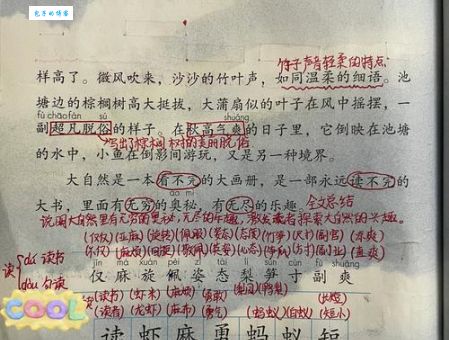 包子的博客
竹子声音轻柔的特点
样高了。微风吹来，沙沙的竹叶声，如同温柔的细语。池
塘边的棕榈树高大挺拔，大蒲扇似的叶子在风中摇摆，一
fù chāo fán sú shuǎng
副超凡脱俗的样子。在秋高气爽的日子里，它倒映在池塘
写出了棕榈树的美丽脱俗
的水中，小鱼在倒影间游玩，又是另一种境界。
大自然是一本看不完的大画册，是一部永远读不完的
ào mì
大书，里面有无穷的奥秘，有无尽的乐趣。全文总结
说明大自然里有无穷的奥秘，无尽的乐趣，激发读者探索大自然的兴趣。
(仅仅)(亚麻)(旋转)(佩服)(姿态)(态度)(竹笋)(尺寸)(副官)(凉爽)
读 dú 读书
dòu 句读
jǐn má xuán pèi zī tài lí sǔn cùn fù shuǎng
仅麻旋佩姿态梨笋寸副爽
(读书)(虾米)(麻烦)(勇敢)
(读者)(龙虾)(麻布)(勇气)(蚂蚁)(白蚁)(短小)
COOL
读虾麻勇蚂蚁短